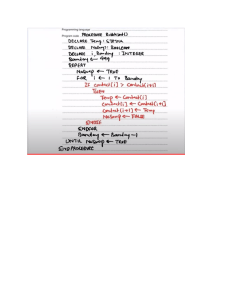 Programming language
Program code PROCEDURE BubbleSort()
DECLARE Temp : STRING
DECLARE NoSwap : BOOLEAN
DECLARE i, Boundary : INTEGER
Boundary ← 999
REPEAT
NoSwap ← TRUE
FOR i ← 1 TO Boundary
IF Contact[i] > Contact[i+1]
THEN
Temp ← Contact[i]
Contact[i] ← Contact[i+1]
Contact[i+1] ← Temp
NoSwap ← FALSE
ENDIF
ENDFOR
Boundary ← Boundary - 1
UNTIL NoSwap = TRUE
END PROCEDURE